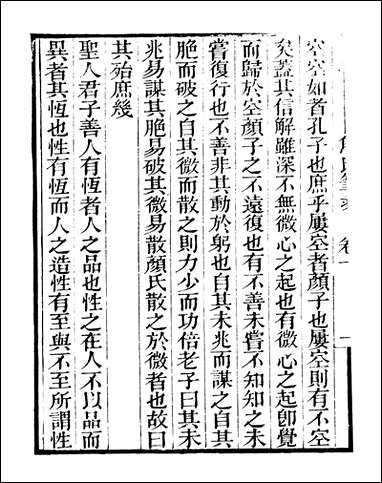 空空如者孔子也庶乎屢空者顏子也屢空則有不空
矣蓋其信解雖深不無微心之起也有微心之起卽覺
而歸於空顏子之不遠復也有不善未嘗不知知之未
嘗復行也不善非其動於躬也自其未兆而謀之自其
脃而破之自其微而散之則力少而功倍老子曰其未
兆易謀其脃易破其微易散顏氏散之於微者也故曰
其殆庶幾
聖人君子善人有恆者人之品也性之在人不以品而
異者其恆也性有恆而人之造性有至與不至所謂性
卷一